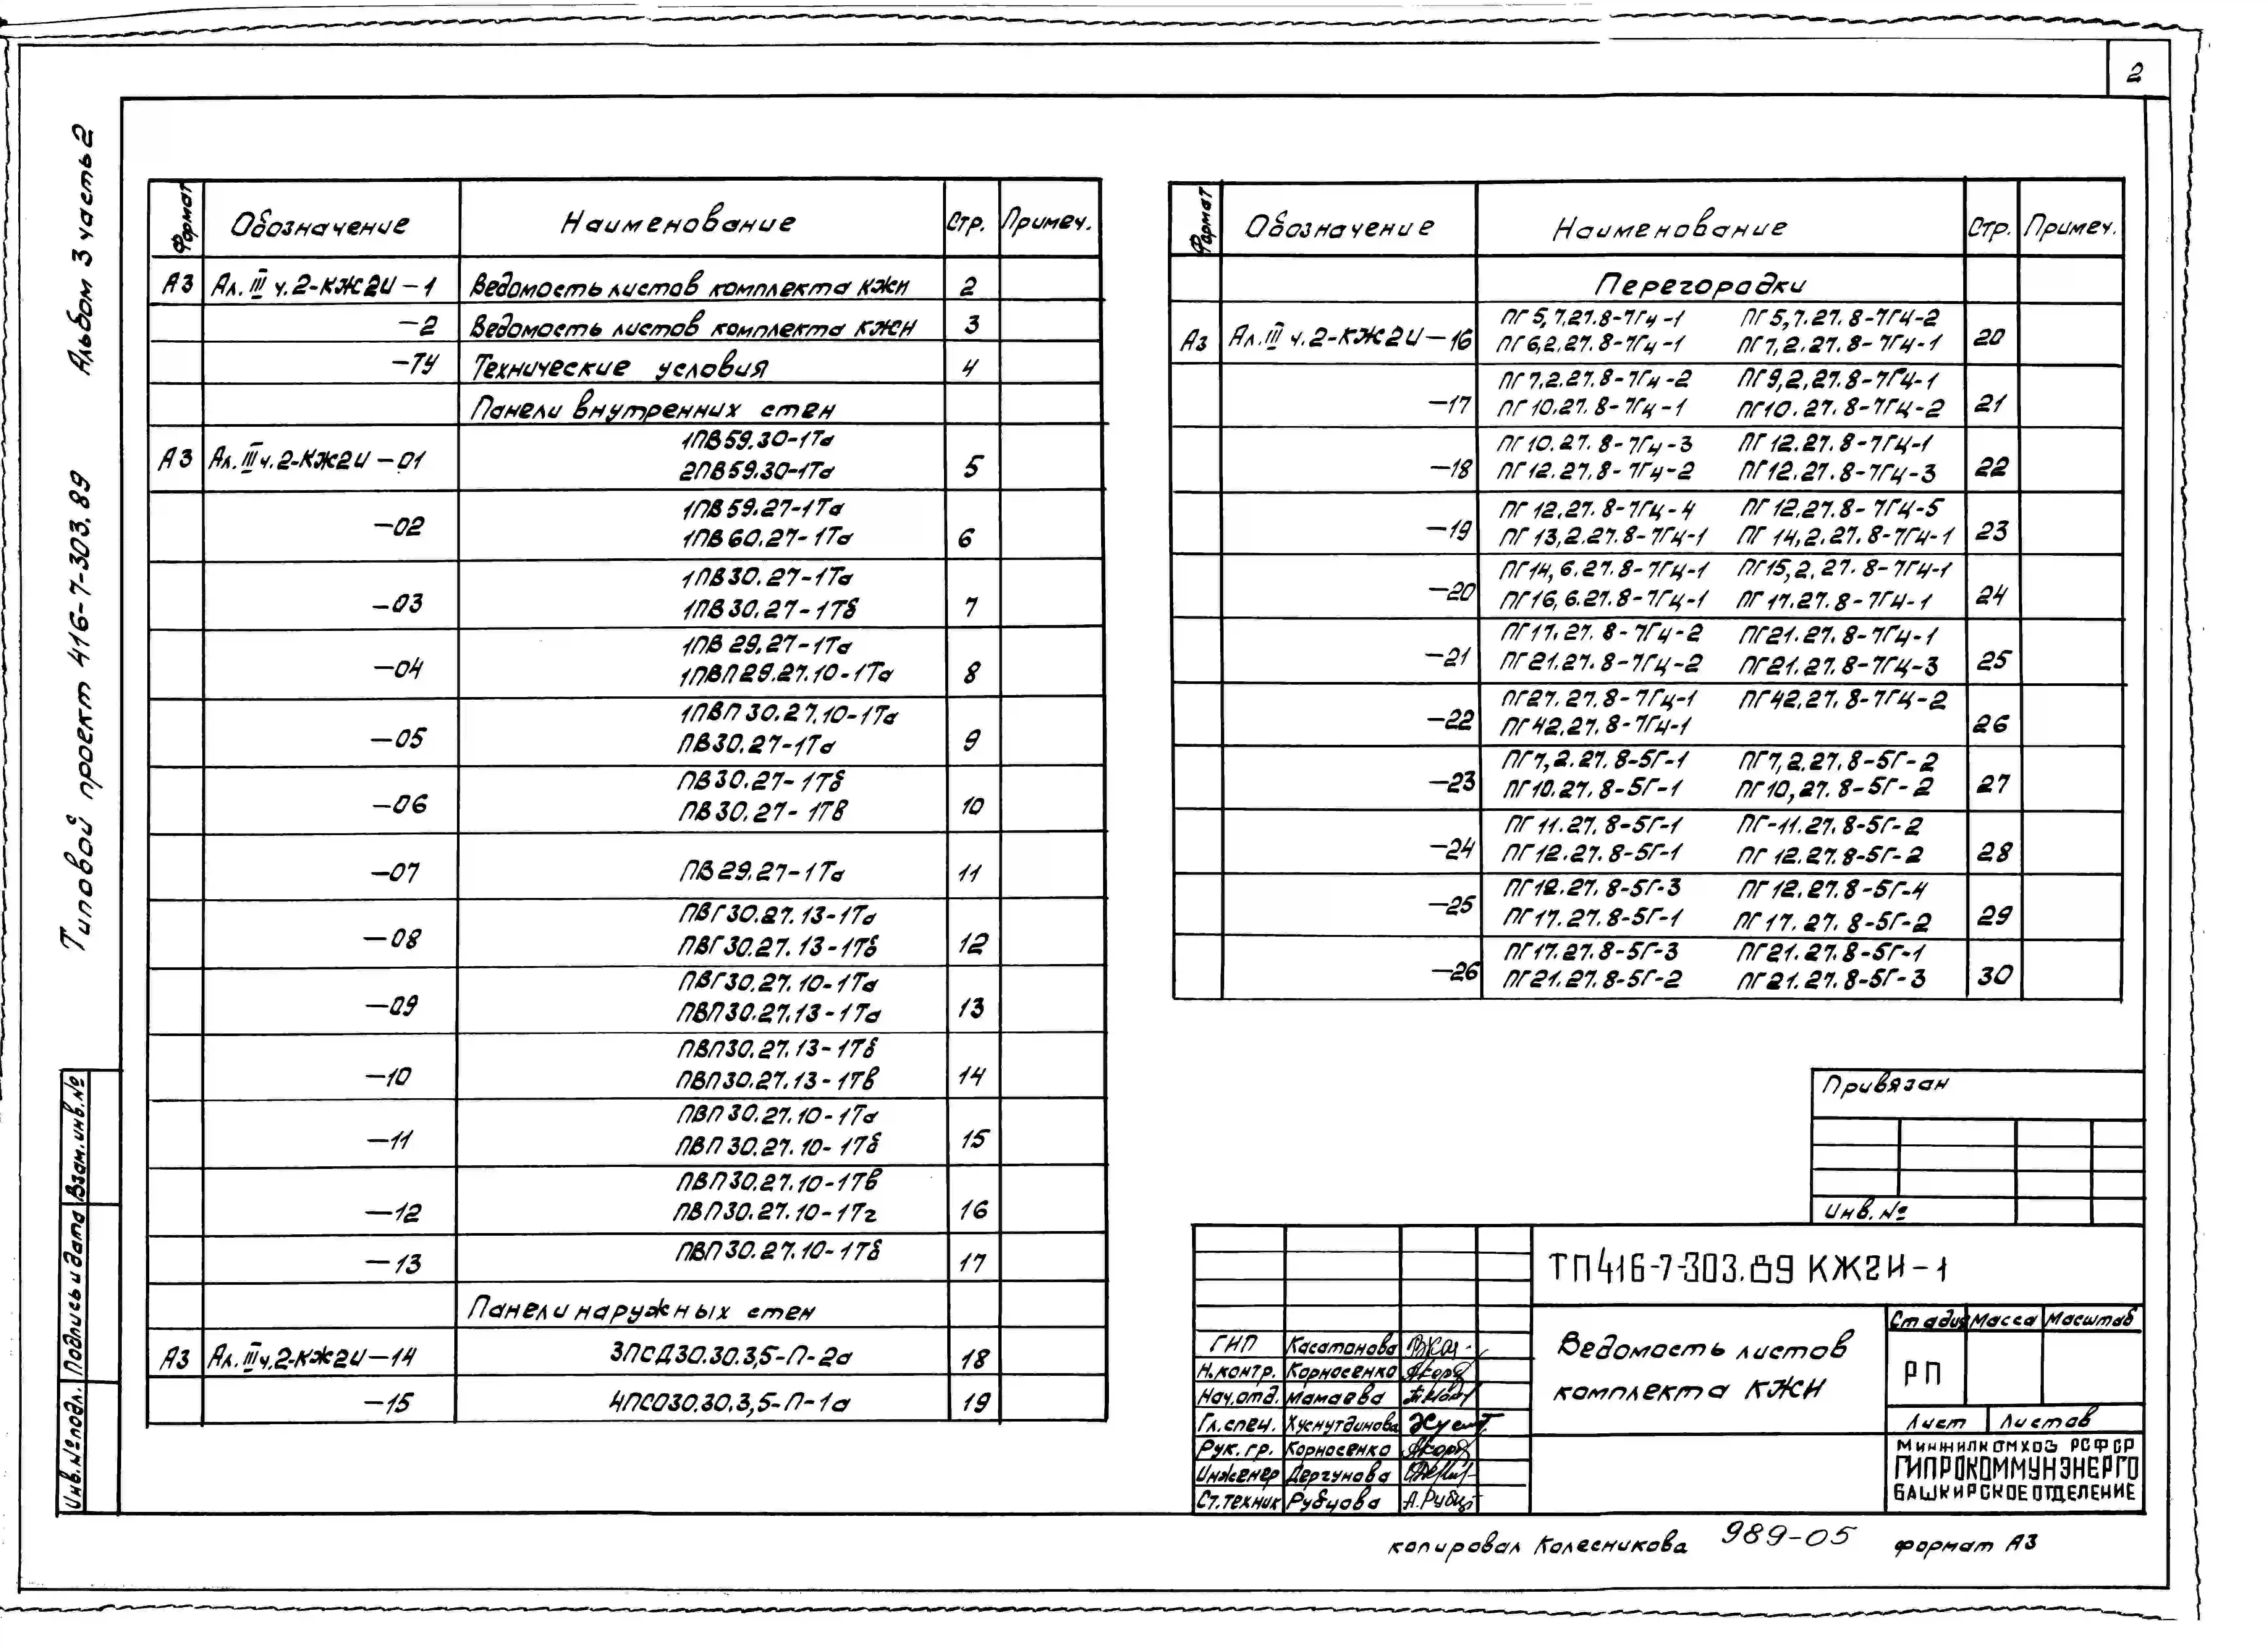 2
Альбом 3 часть 2
Типовой проект 416-7-303.89
Взам.инв.№
Подпись и дата
Инв.№подл.
Формат Обозначение Наименование Стр. Примеч.
А3 Ал. III ч.2-КЖ2И-1 Ведомость листов комплекта КЖИ 2
-2 Ведомость листов комплекта КЖИ 3
-ТУ Технические условия 4
Панели внутренних стен
1ПВ59.30-1Та
А3 Ал.III ч.2-КЖ2И-01 2ПВ59.30-1Та 5
1ПВ59.27-1Та
-02 1ПВ60.27-1Та 6
1ПВ30.27-1Та
-03 1ПВ30.27-1Тб 7
1ПВ29.27-1Та
-04 1ПВП29.27.10-1Та 8
1ПВП30.27.10-1Та
-05 ПВ30.27-1Та 9
ПВ30.27-1Тб
-06 ПВ30.27-1Тв 10
-07 ПВ29.27-1Та 11
ПВГ30.27.13-1Та
-08 ПВГ30.27.13-1Тб 12
ПВГ30.27.10-1Та
-09 ПВП30.27.13-1Та 13
ПВП30.27.13-1Тб
-10 ПВП30.27.13-1Тв 14
ПВП30.27.10-1Та
-11 ПВП30.27.10-1Тб 15
ПВП30.27.10-1Тв
-12 ПВП30.27.10-1Тг 16
-13 ПВП30.27.10-1Тб 17
Панели наружных стен
А3 Ал.III ч.2-КЖ2И-14 3ПСД30.30.3,5-П-2а 18
-15 4ПС030.30.3,5-П-1а 19
Формат Обозначение Наименование Стр. Примеч.
Перегородки
ПГ5,7.27.8-7Гц-1 ПГ5,7.27.8-7Гц-2
А3 Ал.III ч.2-КЖ2И-16 ПГ6,2.27.8-7Гц-1 ПГ7,2.27.8-7Гц-1 20
ПГ7,2.27.8-7Гц-2 ПГ9,2.27.8-7Гц-1
-17 ПГ10.27.8-7Гц-1 ПГ10.27.8-7Гц-2 21
ПГ10.27.8-7Гц-3 ПГ12.27.8-7Гц-1
-18 ПГ12.27.8-7Гц-2 ПГ12.27.8-7Гц-3 22
ПГ12.27.8-7Гц-4 ПГ12.27.8-7Гц-5
-19 ПГ13,2.27.8-7Гц-1 ПГ14,2.27.8-7Гц-1 23
ПГ14,6.27.8-7Гц-1 ПГ15,2.27.8-7Гц-1
-20 ПГ16,6.27.8-7Гц-1 ПГ17.27.8-7Гц-1 24
ПГ17.27.8-7Гц-2 ПГ21.27.8-7Гц-1
-21 ПГ21.27.8-7Гц-2 ПГ21.27.8-7Гц-3 25
ПГ27.27.8-7Гц-1 ПГ42.27.8-7Гц-2
-22 ПГ42.27.8-7Гц-1 26
ПГ7,2.27.8-5Г-1 ПГ7,2.27.8-5Г-2
-23 ПГ10.27.8-5Г-1 ПГ10,27.8-5Г-2 27
ПГ11.27.8-5Г-1 ПГ-11.27.8-5Г-2
-24 ПГ12.27.8-5Г-1 ПГ12.27.8-5Г-2 28
ПГ12.27.8-5Г-3 ПГ12.27.8-5Г-4
-25 ПГ17.27.8-5Г-1 ПГ17.27.8-5Г-2 29
ПГ17.27.8-5Г-3 ПГ21.27.8-5Г-1
-26 ПГ21.27.8-5Г-2 ПГ21.27.8-5Г-3 30
Привязан
Инв.№
ТП416-7-303.89 КЖ2И-1
ГИП Касатонова
Н.контр. Корносенко
Нач.отд. Мамаева
Гл.спец. Хуснутдинова
Рук.гр. Корносенко
Инженер Дергунова
Ст.техник Рубцова А.Рубц
Ведомость листов
комплекта КЖИ
Стадия Масса Масштаб
РП
Лист Листов
Минжилкомхоз РСФСР
ГИПРОКОММУНЭНЕРГО
БАШКИРСКОЕ ОТДЕЛЕНИЕ
копировал Колесникова 989-05 формат А3